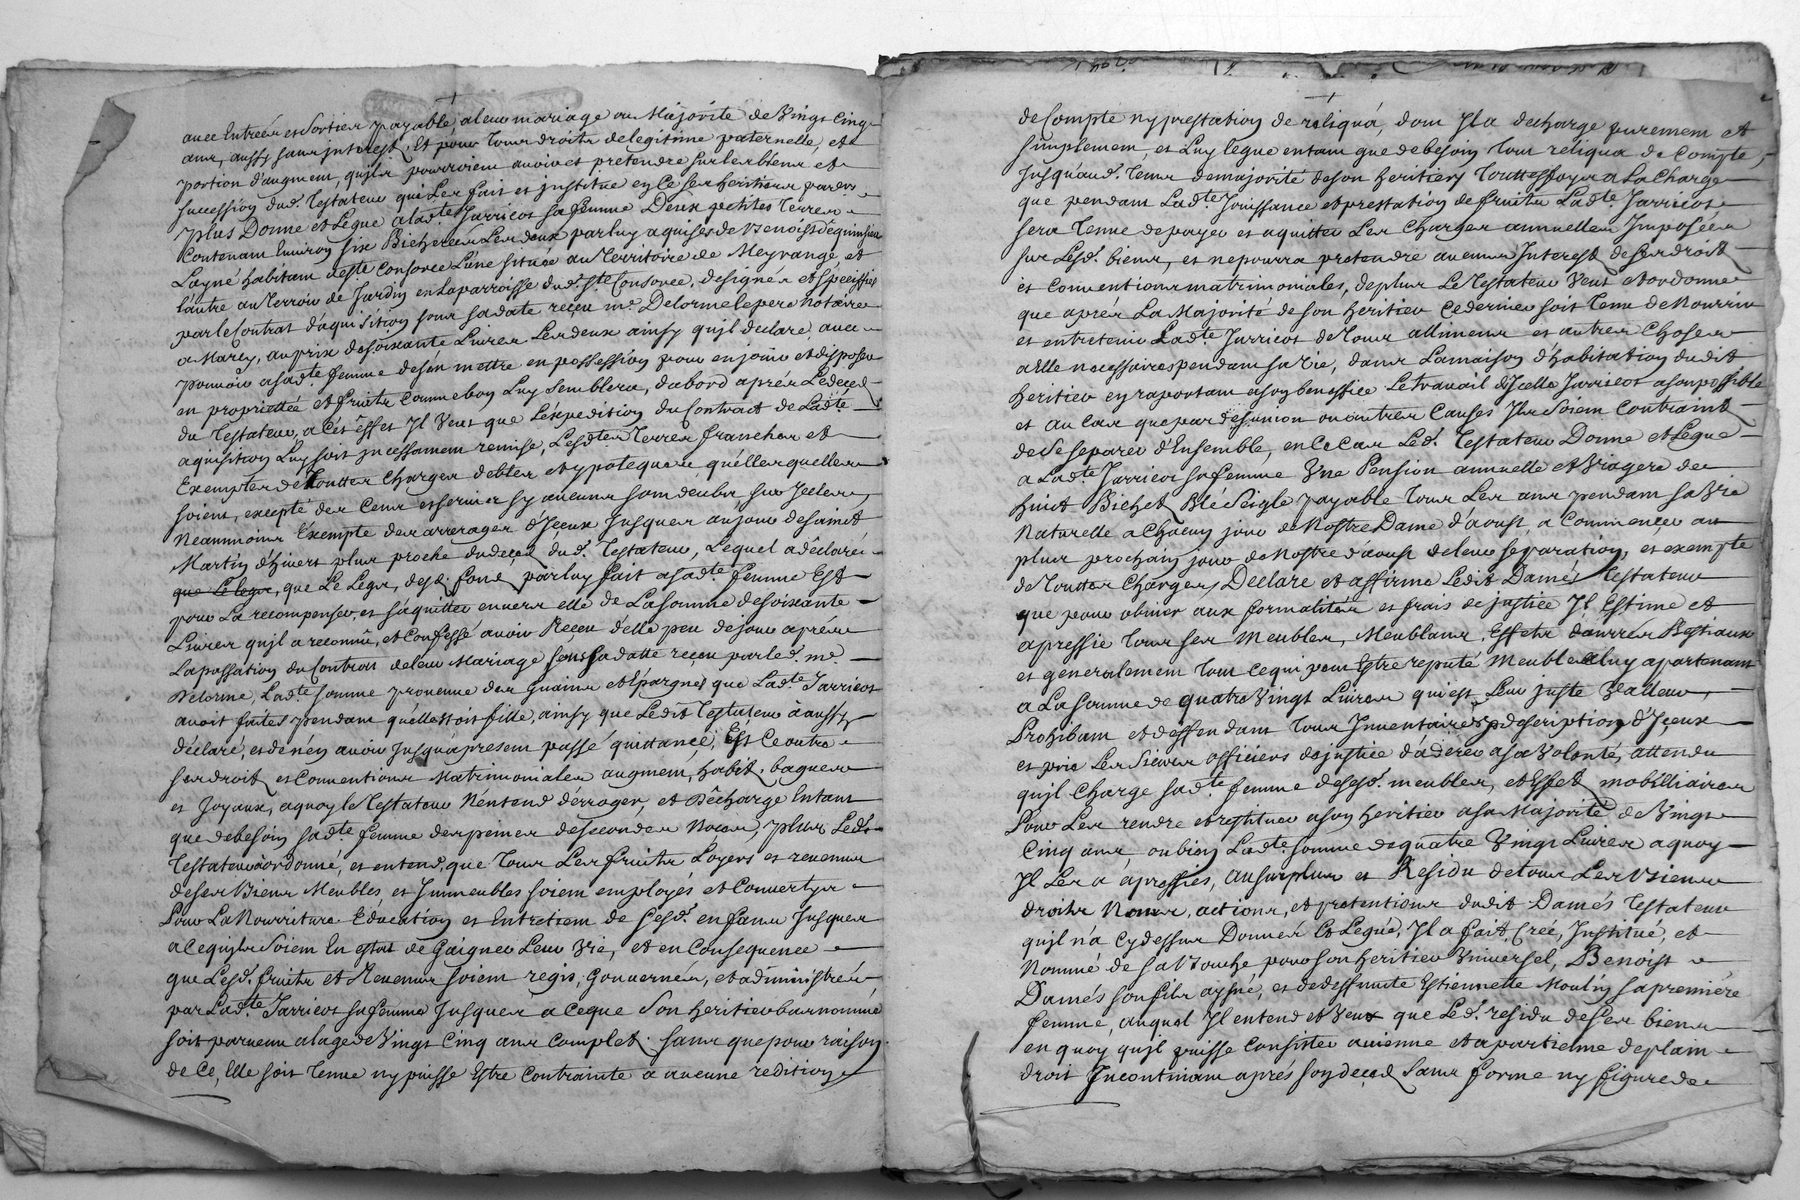 avec Entrées et Sorties payable a leur mariage ou Majorité de Vingt Cinq
ans, aussy sans interest, Et pour Tous droits de legitime paternelle, et
portion d'augment, qu'ils pourroient avoir et pretendre sur les biens et
succession dud. Testateur qui Les fait et institüe en Ce ses heritiers parers
plus Donne et Legue a ladte Jarricot sa femme Deux petites Terres
Contenant Environ six Bicherées Les deux par luy aquises de Benoist
Layné habitant deste Consorce L'une située au Territoire de Meyrange, et
l'autre au Terroir de Jardin en La parroisse dud. Ste Consorce, designées et speciffiées
par le Contrat d'aquisition sous sa date reçeu me. Delorme le pere notaire
a Marcy, au prix de soixante Livres Les deux ainsy qu'il declare, avec
pouvoir a sadte. femme de s'en mettre en possession pour en joüir et disposer
en proprietté et fruits comme bon Luy semblera, dabord aprés Le decéd
du Testateur, a Cet effet Il Veut que L'expedition du Contract de Ladte
aquisition Luy soit incessament remise, Lesdtes Terres franches et
Exemptes de touttes Charges debtes et ypoteques qu'elles quelles
soient, excepté des Cens et servis sy aucuns sont deubs sur Icelles,
Neanmoins Exempte des arrerages d'Iceux Jusques au jour de saint
Martin d'hivert plus proche du decéd dud. Testateur, Lequel a déclaré
que Le legs, que Le Legs, desd. fond par luy fait a sadte. femme Est
pour La recompenser, et s'aquitter envers elle de La somme de soixante
Livres qu'il a reconnû, et Confessé avoir Reçeu d'elle peu de jour aprés
La passation du Contrat de leur Mariage sous sa datte reçeu par led. me.
Delorme, Ladte. somme provenue des Gains et Epargnes que Ladte. Jarricot
avoit faites pendant qu'elle estoit fille, ainsy que Ledit Testateur a aussy
déclaré, et de n'en avoir Jusqu'a present passé quittance, Est Ce outre
ses droit et Conventions Matrimoniales augment, habit, bagues
et Joyaux, a quoy le Testateur N'entend dérroger, et Décharge Entant
que de besoin sadte femme des peines de secondes Noces, plus Ledt.
Testateur a ordonné, et entend, que Tous Les fruits Loyers et revenus
de ses Biens Meubles, et Immeubles soient employés et Convertys
Pour La Nourriture Education et Entretient de sesd. enfans Jusques
a ce qu'ils soient En estat de Gaigner Leur Vie, et en Consequence
que Lesd. fruits et Revenus soient regis, Gouvernés, et administrés
par Ladte Jarricot sa femme Jusques a ce que Son heritier bas nommé
soit parvenu a lage de Vingt Cinq ans Complet. sans que pour raison
de Ce, Elle soit Tenue ny puisse Estre Contrainte a aucune redition
de Compte ny prestation de reliqua, dont Il a decharge purement et
simplement, et Luy legue entant que de besoin tout reliqua de Compte,
Jusqu'aud. Tems de majorité de son heritier, Touttesfoys a La Charge
que pendant Ladte Jouissance et prestation de fruits Ladte. Jarricot
sera Tenue de payer et aquitter Les Charges annuelles Imposées
sur Lesd. biens, et ne pourra pretendre aucuns Interest de ses droit
et Conventions matrimoniales, de plus Le Testateur Veut et ordonne
que aprés La Majorité de son heritier Ce dernier soit Tenu de Nourrir
et entretenir Ladte Jarricot de tous allimens et autres Choses
a Elle necessaires pendant sa Vie, dans La maison d'habitation dudit
heritier en raportant a son benefice Le travail d'Icelle Jarricot a son possible
et au Cas que par desunion ou autres Causes Ils soient Contraint
de se separer d'Ensemble, en Ce Cas Led. Testateur Donne et Legue
a Ladte Jarricot sa femme Vne Pension annuelle et Viagere de
huit Bichet Blé seigle payable tous Les ans pendant sa Vie
Naturelle a Chacun jour de Nostre Dame d'aoust, a Commencer au
plus prochain jour de Nostre d'aoust de leur separation, et exempte
de Touttes Charges, Declare et affirme Ledit Damés Testateur
que pour obvier aux formalités et frais de justice Il Estime et
apressie tous ses Meubles, Meublans, Effets danrrés Bestiaux
et generalement tout ce qui peut Estre reputé Meuble a luy apartenant
a La somme de quatre Vingt Livres qui est Leur juste Valleur,
Prohibant et deffendant tous Inventaires, et description d'Iceux
et prie Les sieurs officiers de justice d'adérer a sa Volonté, attendu
qu'il Charge sadte femme desesd. meubles, et Effet mobilliaires
Pour Les rendre et restituer a son heritier a sa Majorité de Vingt
Cinq ans, ou bien Ladte. somme de quatre Vingt Livres a quoy
Il Les a apressiés, au surplus et Residu de tous Les Biens
droits Noms, actions, et pretentions dudit Damés Testateur
qu'il n'a Cy dessus Donnés Et Legué, Il a fait, Créé, Institué, et
Nommé de sa Bouche pour son heritier Vniversel, Benoist
Damés son fils ayné, et de deffunte Estiennette Moulin sa premiére
femme, auquel Il entend et Veut que Led. residu de ses biens
en quoy qu'il puisse Consister avienne et apartienne de plain
droit Incontinant aprés son decéd sans forme ny figure de